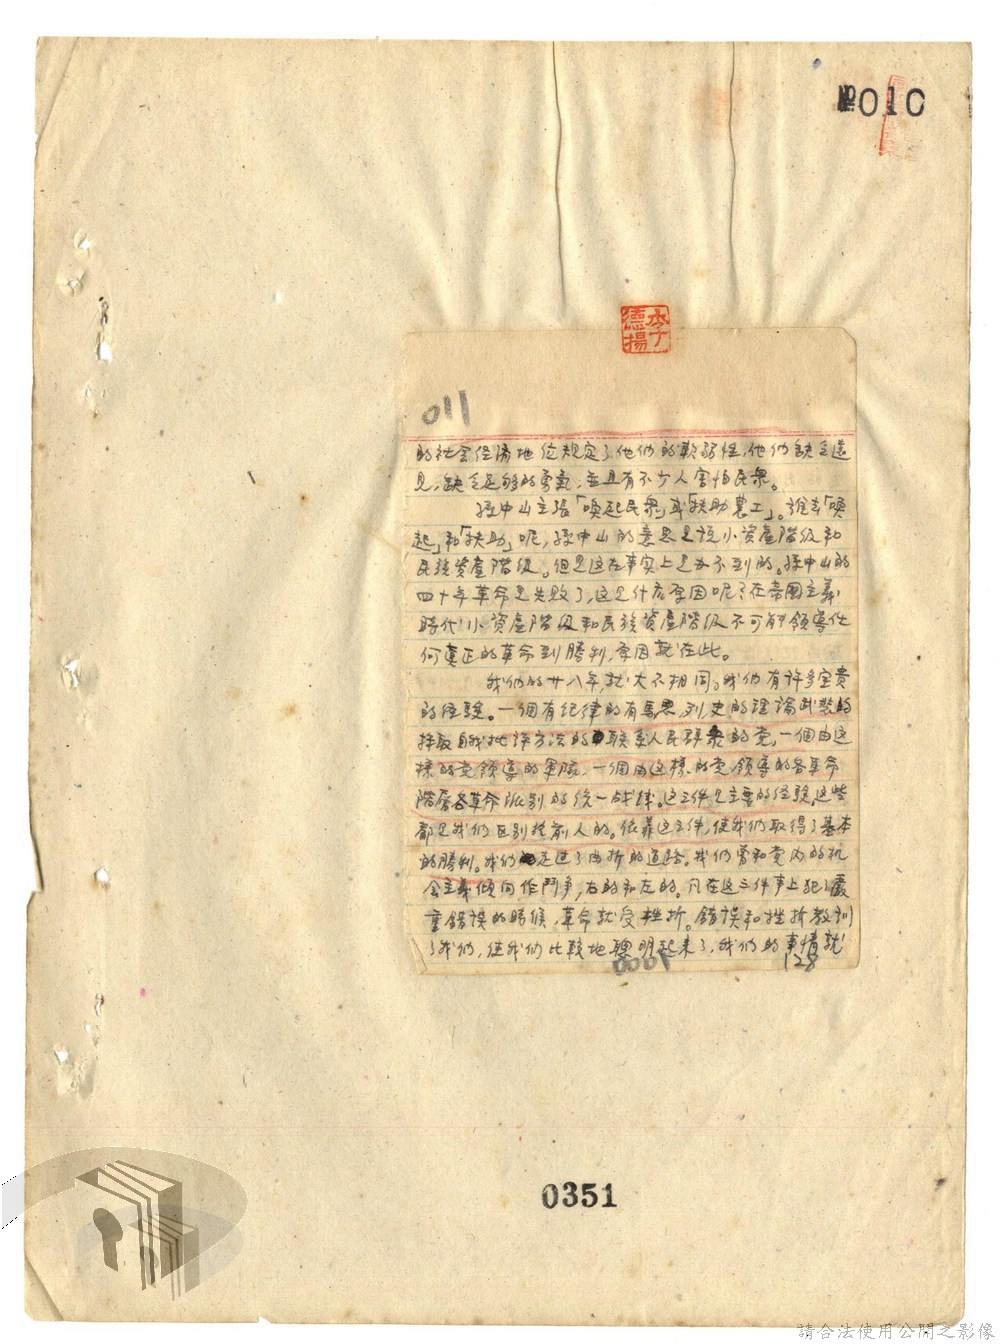 №010
李
德揚
011
的社会经济地位規定了他們的軟弱性,他們缺乏遠
見,缺乏足够的勇氣,並且有不少人害怕民衆。
孫中山主張「喚起民衆」或「扶助農工」。誰去「喚
起」和「扶助」呢,孫中山的意思是說小資產階級和
民族資產階級。但是這在事实上是办不到的。孫中山的
四十年革命是失敗了,这是什么原因呢?在帝国主義
時代小資產階級和民族資產階級不可能領導任
何真正的革命到勝利,原因就在此。
我們的廿八年,就大不相同。我們有許多宝貴
的经験。一個有纪律的有馬恩列史的理論武裝的
採取自我批評方法的联系人民群衆的党,一個由这
樣的党領導的軍隊,一個由这樣的党領導的各革命
階層各革命派别的统一战线。这三件是主要的经験。这些
都是我們区别於前人的。依靠这三件,使我們取得了基本
的勝利。我們走过了曲折的道路。我們曾和党内的机
会主義傾向作鬥爭,右的和左的。凡在这三件事上犯了嚴
重錯误的時候,革命就受挫折。錯误和挫折教訓
了我們,使我們比較地聰明起来了,我們的事情就
0001
128
0351
請合法使用公開之影像